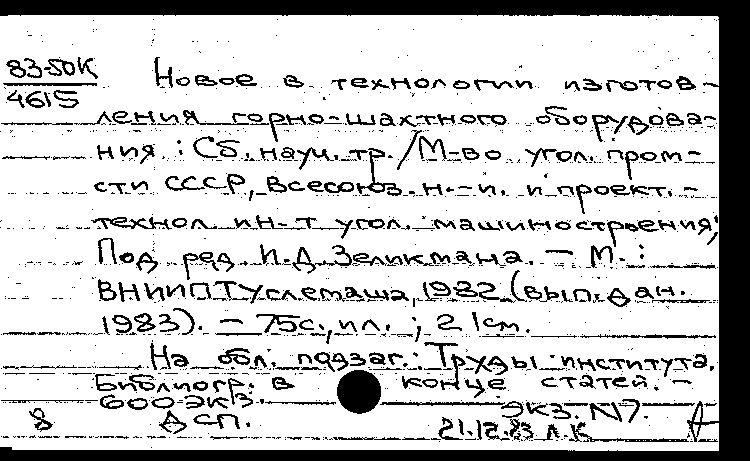 83-50К
4615
Новое в технологии изготов-
ления горно-шахтного оборудова-
ния : Сб. науч. тр. / М-во угол. пром-
сти СССР, Всесоюз. н.-и. и проект.-
технол. ин-т угол. машиностроения;
Под ред. И.Д. Зеликмана. — М. :
ВНИИПТУглемаша, 1982 (вып. дан.
1983). — 75с., ил. ; 21см.
На обл. подзаг.: Труды института.
Библиогр. в конце статей. —
600 экз.
экз. N7.
8 ДСП.
21.12.83 Л.К